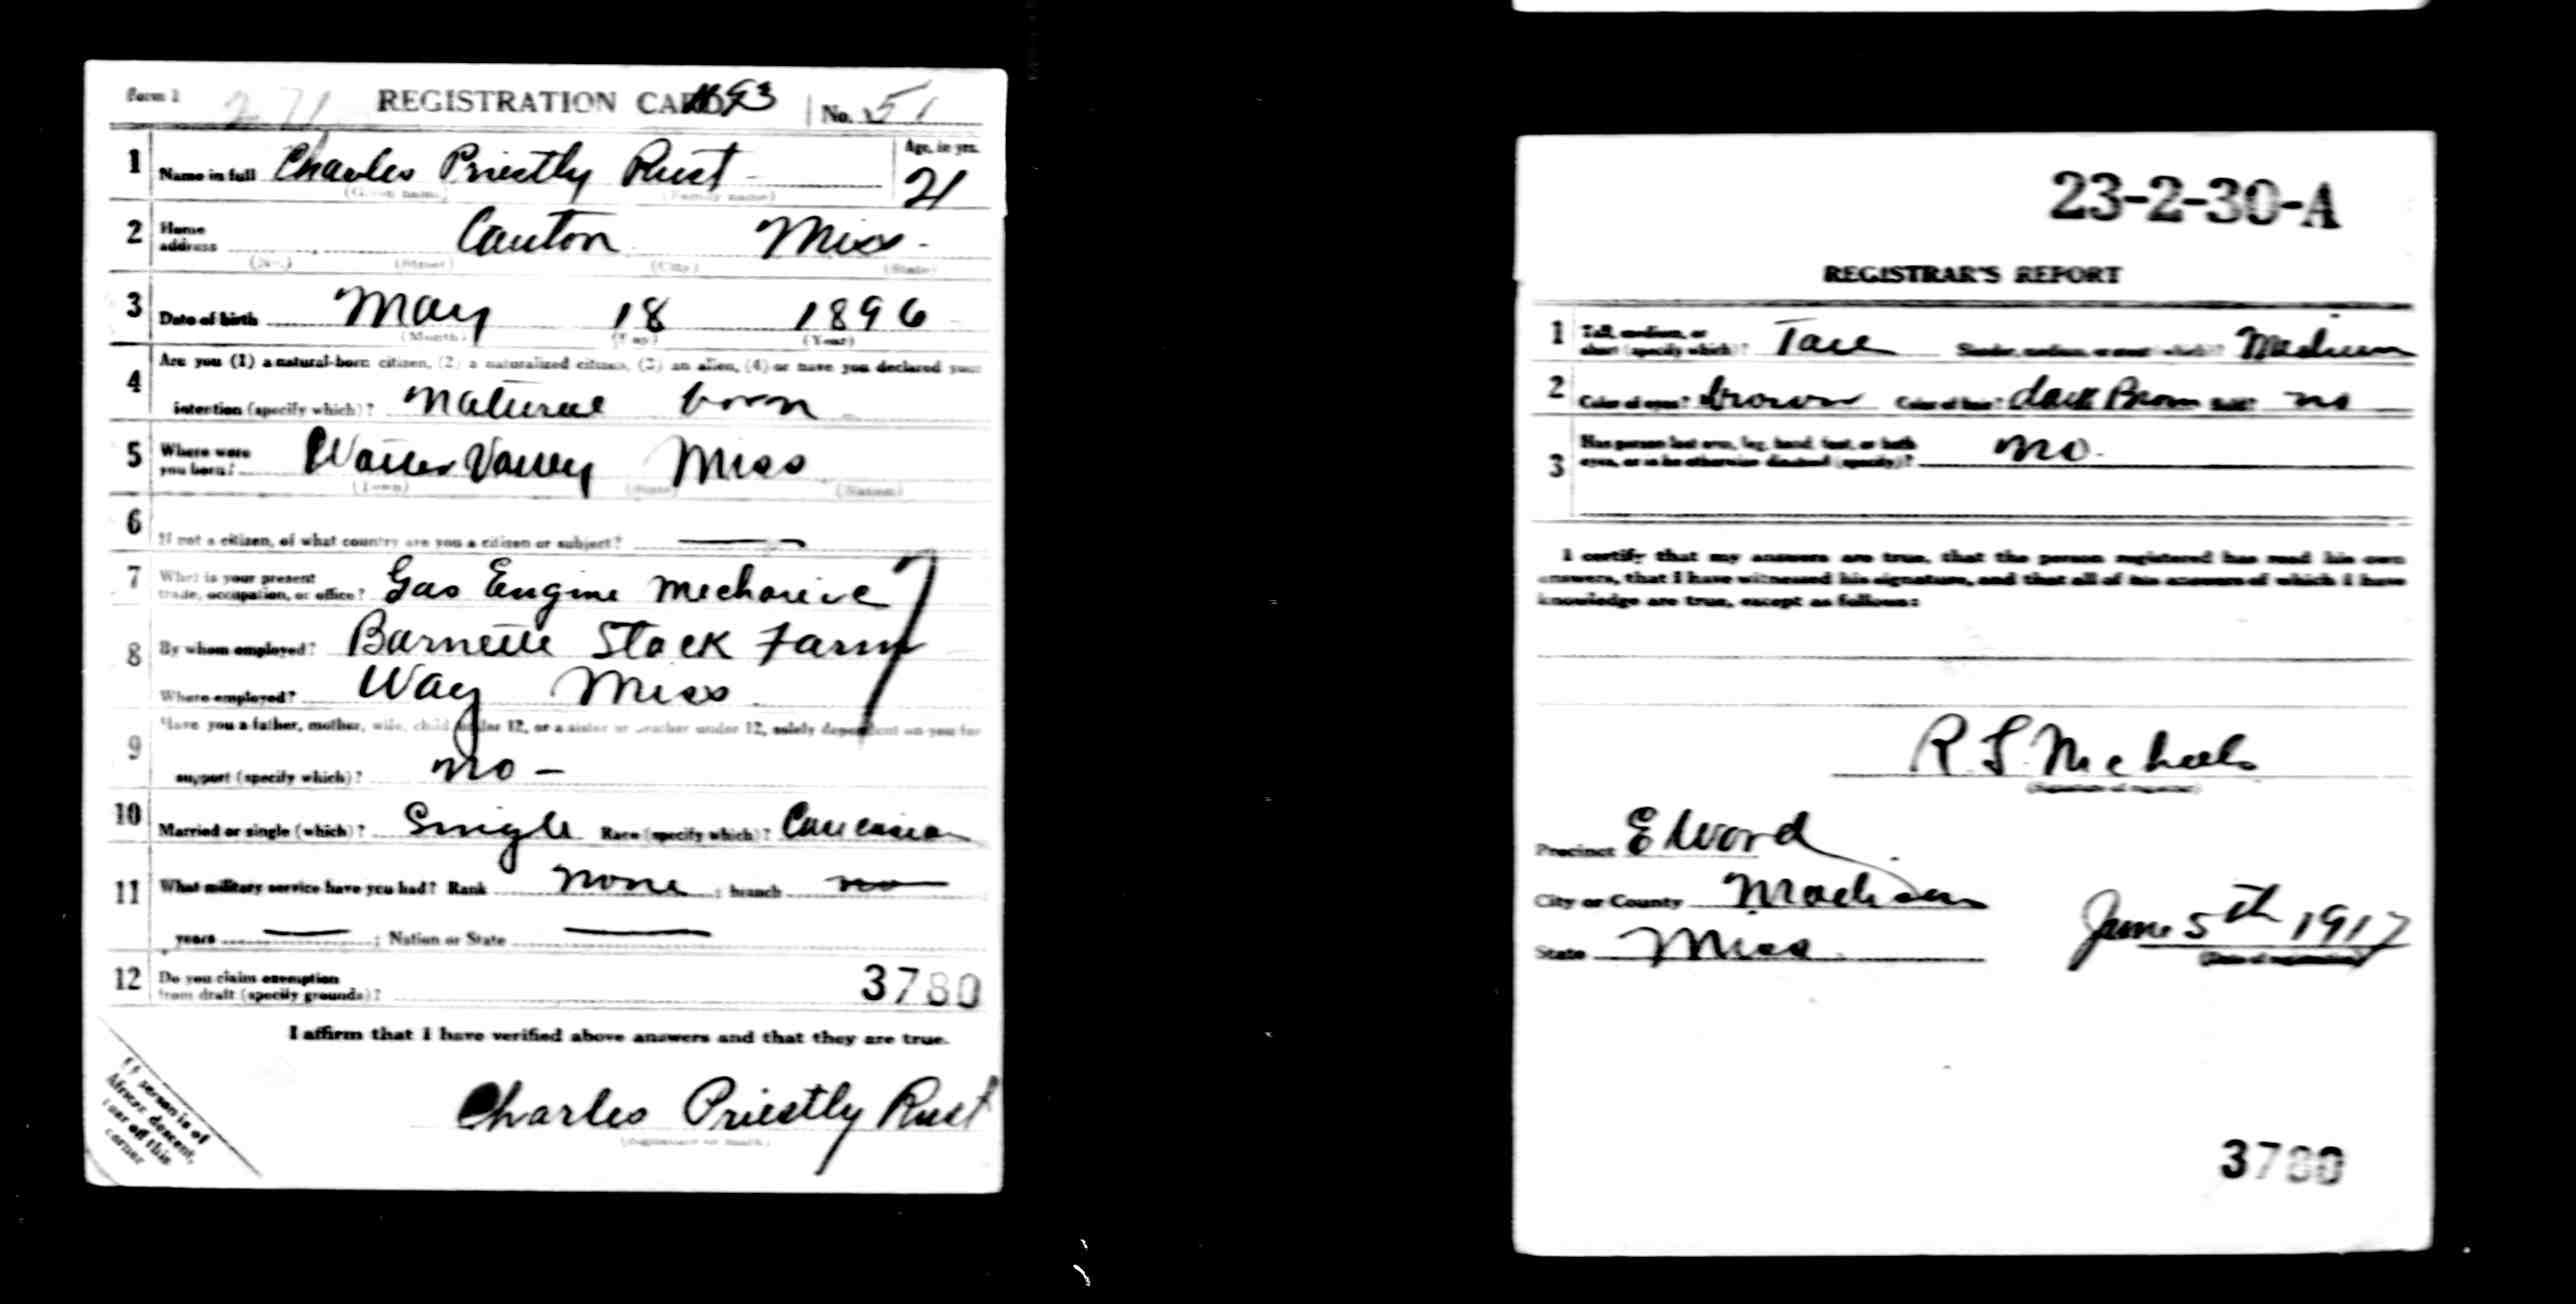 Form 1 271 REGISTRATION CARD 93 No. 51
1 Name in full Charles Priestly Rust Age, in yrs. 21
(Given name) (Family name)
2 Home address Canton Miss.
(No.) (Street) (City) (State)
3 Date of birth May 18 1896
(Month) (Day) (Year)
4 Are you (1) a natural-born citizen, (2) a naturalized citizen, (3) an alien, (4) or have you declared your
intention (specify which)? Natural born
5 Where were you born? Water Valley Miss
(Town) (State) (Nation)
6 If not a citizen, of what country are you a citizen or subject?
7 What is your present trade, occupation, or office? Gas Engine Mechanic
8 By whom employed? Barnette Stock Farm
Where employed? Way Miss
9 Have you a father, mother, wife, child under 12, or a sister or brother under 12, solely dependent on you for
support (specify which)? no -
10 Married or single (which)? Single Race (specify which)? Caucasian
11 What military service have you had? Rank none ; branch no
years ; Nation or State
12 Do you claim exemption from draft (specify grounds)? 3780
I affirm that I have verified above answers and that they are true.
Charles Priestly Rust
(Signature or mark)
If person is of
African descent,
tear off this
corner
23-2-30-A
REGISTRAR'S REPORT
1 Tall, medium, or short (specify which)? Tall Slender, medium, or stout (which)? Medium
2 Color of eyes? brown Color of hair? dark Brown Bald? no
3 Has person lost arm, leg, hand, foot, or both eyes, or is he otherwise disabled (specify)? no.
I certify that my answers are true, that the person registered has read his own
answers, that I have witnessed his signature, and that all of his answers of which I have
knowledge are true, except as follows:
R. S. Michaels
(Signature of registrar)
Precinct E Ward
City or County Madison
State Miss.
June 5th 1917
(Date of registration)
3780